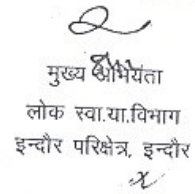 मुख्य अभियंता
लोक स्वा.या.विभाग
इन्दौर परिक्षेत्र, इन्दौर